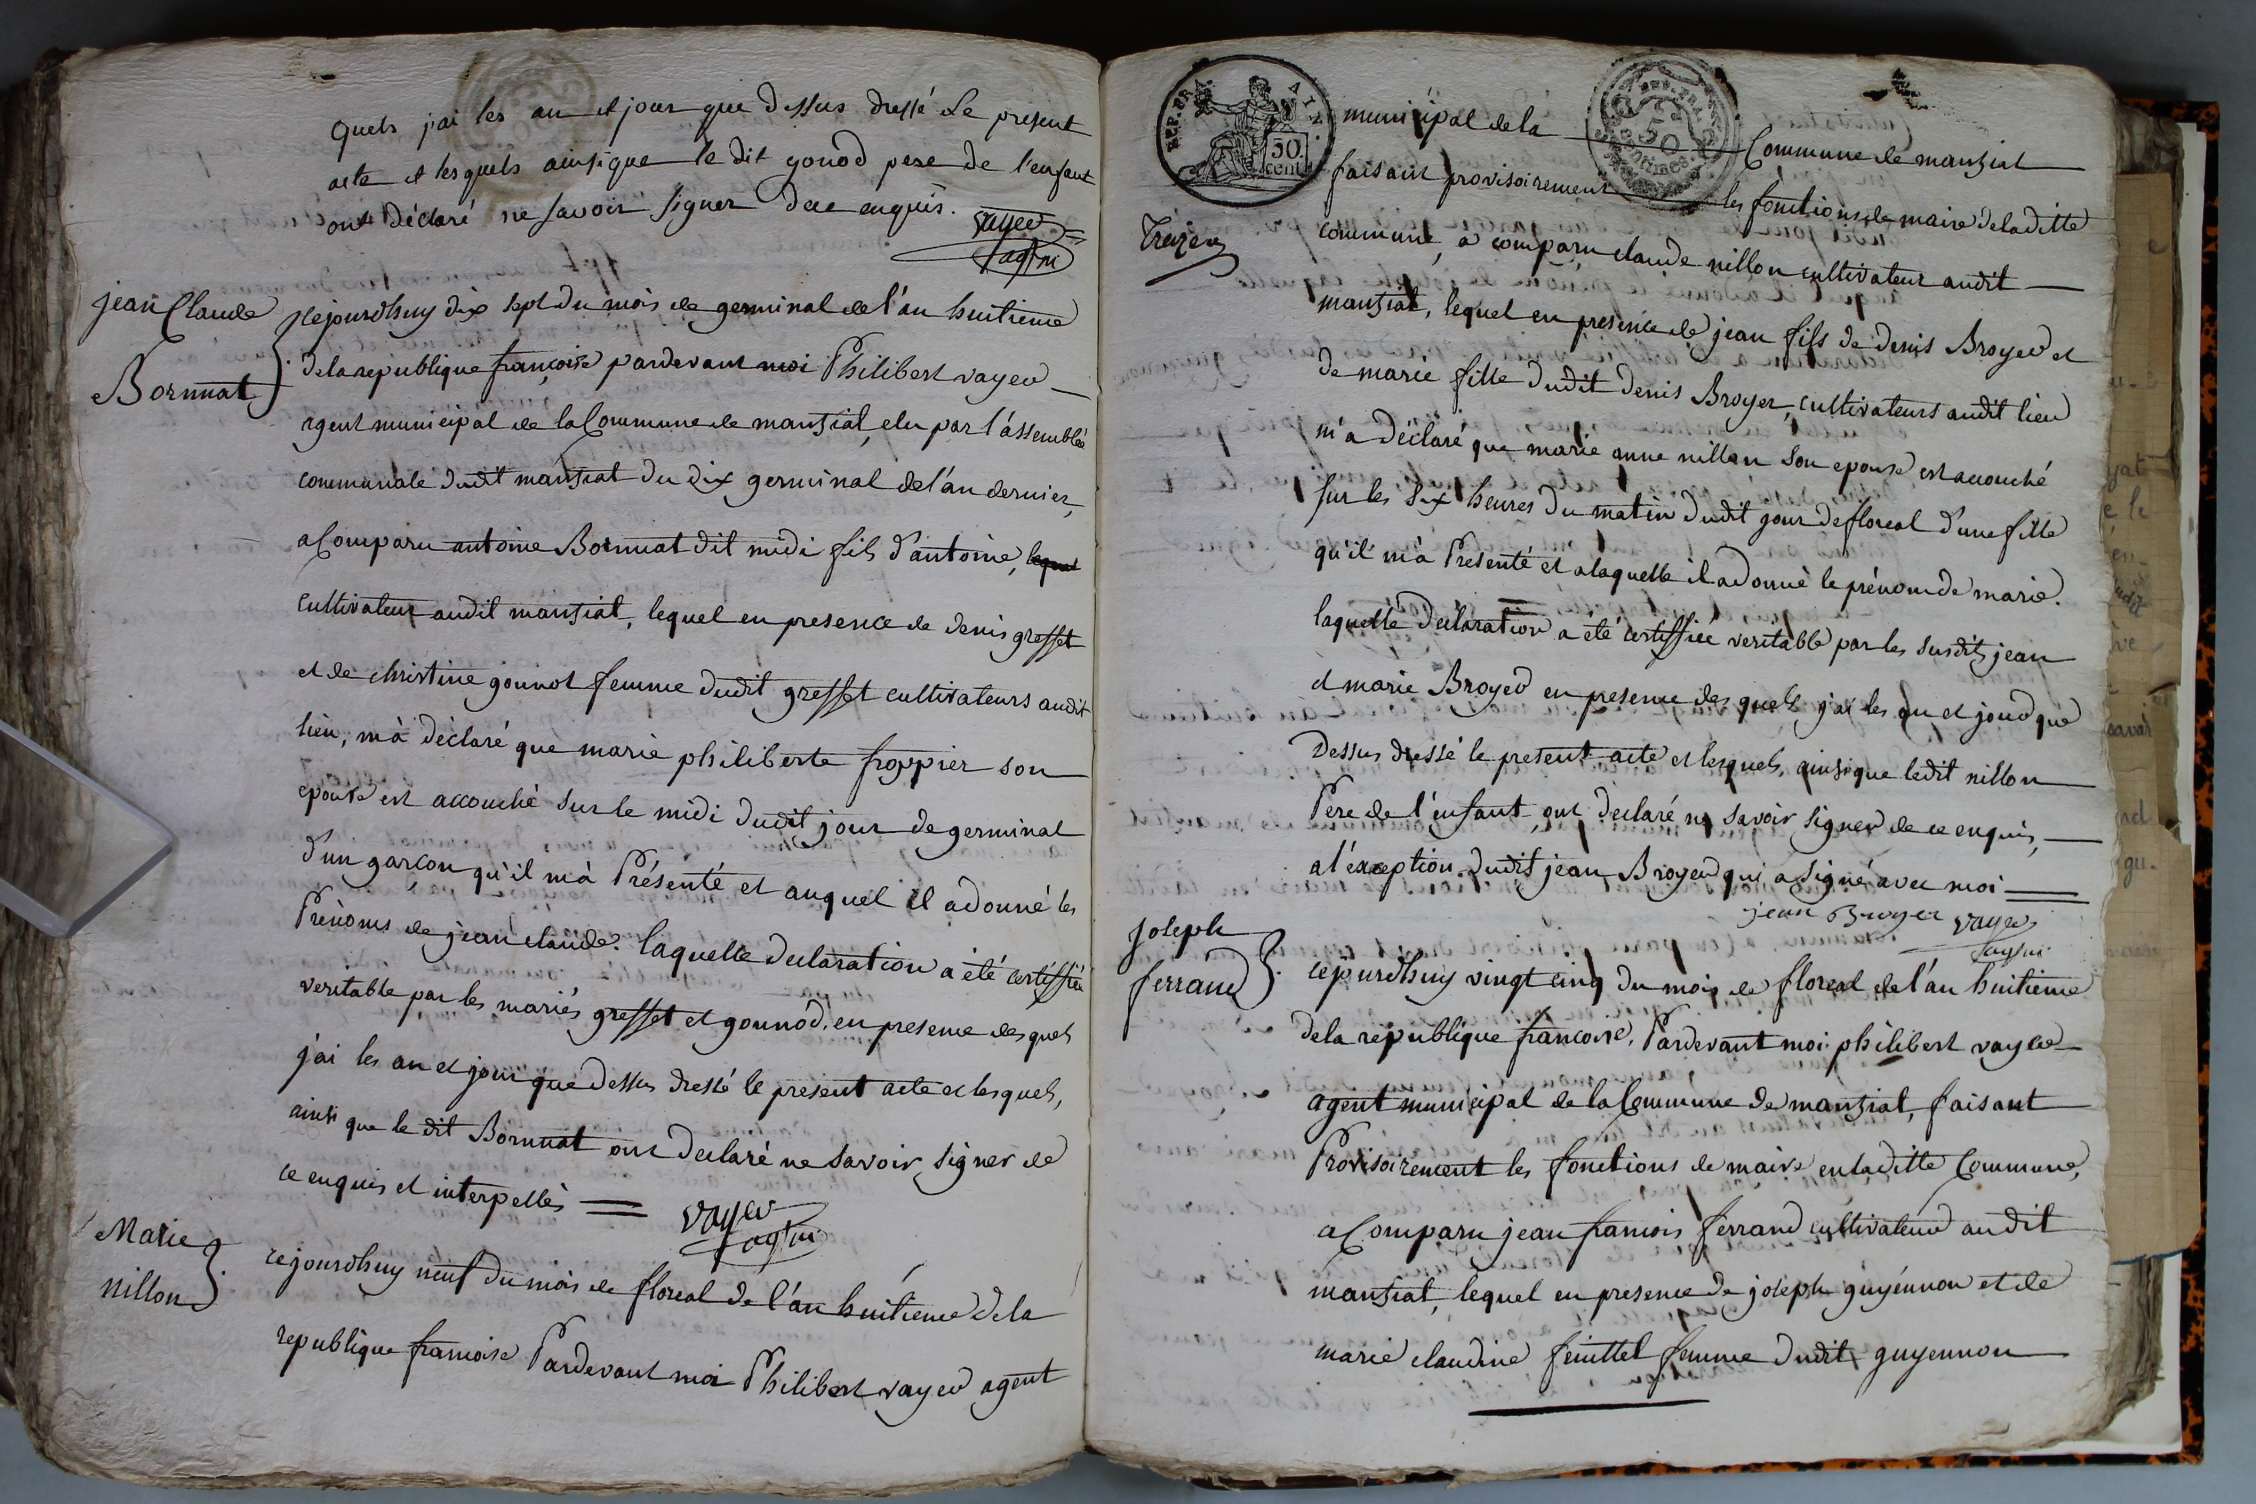 quels j'ai les an et jour que dessus dressé le present
acte et lesquels ainsique le dit gonod pere de l'enfant
ont déclaré ne savoir signer de ce enquis.
vayer
agt m
jean Claude
Bornuat
cejourdhuy dix sept du mois de germinal de l'an huitieme
de la republique françoise pardevant moi Philibert vayer
agent municipal de la Commune de manziat, elu par l'assemblée
communale dudit manziat du dix germinal de l'an dernier,
a Comparu antoine Bornuat dit midi fils d'antoine,
cultivateur audit manziat, lequel en presence de denis greffet
et de christine gonnot femme dudit greffet cultivateurs audit
lieu, m'a déclaré que marie philiberte froppier son
epouse est accouché sur le midi dudit jour de germinal
d'un garçon qu'il m'a Présenté et auquel il a donné les
Prénoms de jean claude. laquelle declaration a été certiffiée
veritable par les mariés greffet et gonnod. en presence des quels
j'ai les an et jour que dessus dressé le present acte et lesquels,
ainsi que le dit Bornuat ont declaré ne savoir signer de
ce enquis et interpellés
vayer
agt m
Marie
nillon
cejourdhuy neuf du mois de floreal de l'an huitieme de la
republique francoise Pardevant moi Philibert vayer agent
REP. FRA
AIN.
50
cent
REP. FRA.
50
centimes
municipal de la Commune de manziat
faisant provisoirement les fonctions de maire de la ditte
treize
commune, a comparu claude nillon cultivateur audit
manziat, lequel en presence de jean fils de denis Broyer et
de marie fille dudit denis Broyer, cultivateurs audit lieu
m'a déclaré que marie anne nillon son epouse est accouché
sur les six heures du matin dudit jour de floreal d'une fille
qu'il m'a Presenté et a laquelle il a donné le prénom de marie.
laquelle declaration a été certiffiée veritable par les susdits jean
et marie Broyer en presence des quels j'ai les an et jour que
Dessus dressé le present acte et lesquels, ainsique ledit nillon
Pere de l'enfant ont declaré ne savoir signer de ce enquis,
a l'exception dudit jean Broyer qui a signé avec moi
jean Broyer vayer
agt m
joseph
ferrand
cejourdhuy vingt cinq du mois de floreal de l'an huitieme
de la republique francoise. Pardevant moi philibert vayer
agent municipal de la Commune de manziat, faisant
Provisoirement les fonctions de maire en la ditte Commune,
a Comparu jean francois ferrand cultivateur audit
manziat, lequel en presence de joseph guyennon et de
marie claudine feuillet femme dudit guyennon